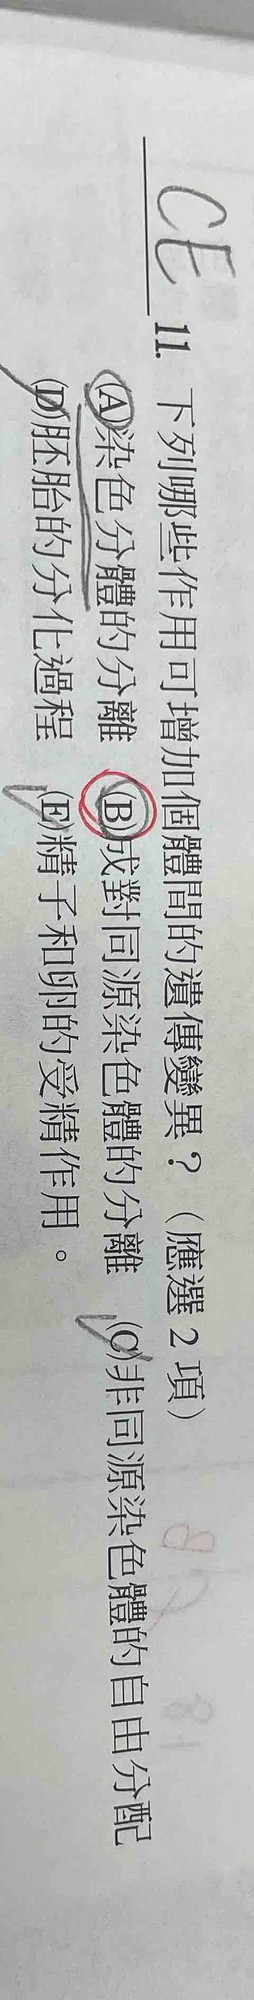 CE 11. 下列哪些作用可增加個體間的遺傳變異？（應選 2 項）
(A)染色分體的分離 (B)成對同源染色體的分離 (C)非同源染色體的自由分配
(D)胚胎的分化過程 (E)精子和卵的受精作用。